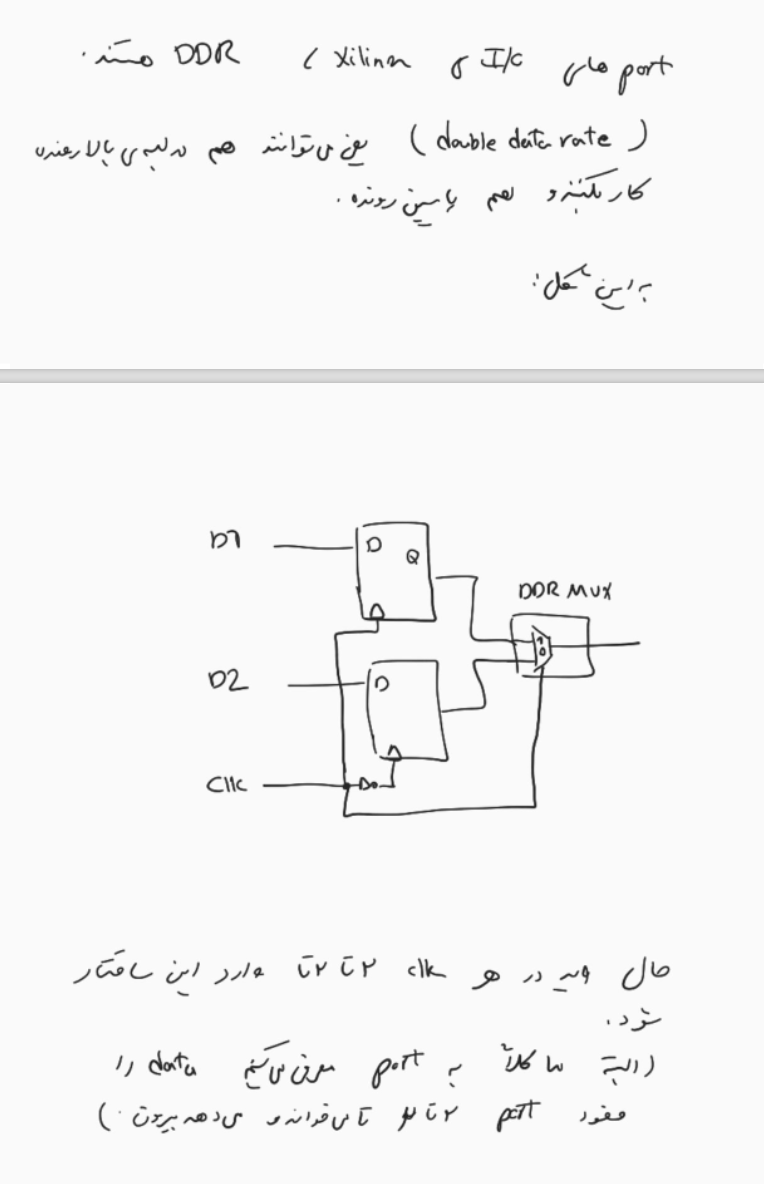 port های I/O ی Xilinx، DDR هستند.
(double data rate) یعنی می‌توانند هم در لبه‌ی بالا رونده
کار بکنند و هم پایین رونده.
به این شکل:
D1
D
Q
DDR MUX
1
0
D2
D
Clk
حال باید در هر clk ۲ تا ۲ تا وارد این ساختار
شود.
(البته ما کلاً به port معرفی می‌کنیم data را
و خود port ۲ تا ۲ تا می‌خواند و می‌دهد بیرون.)